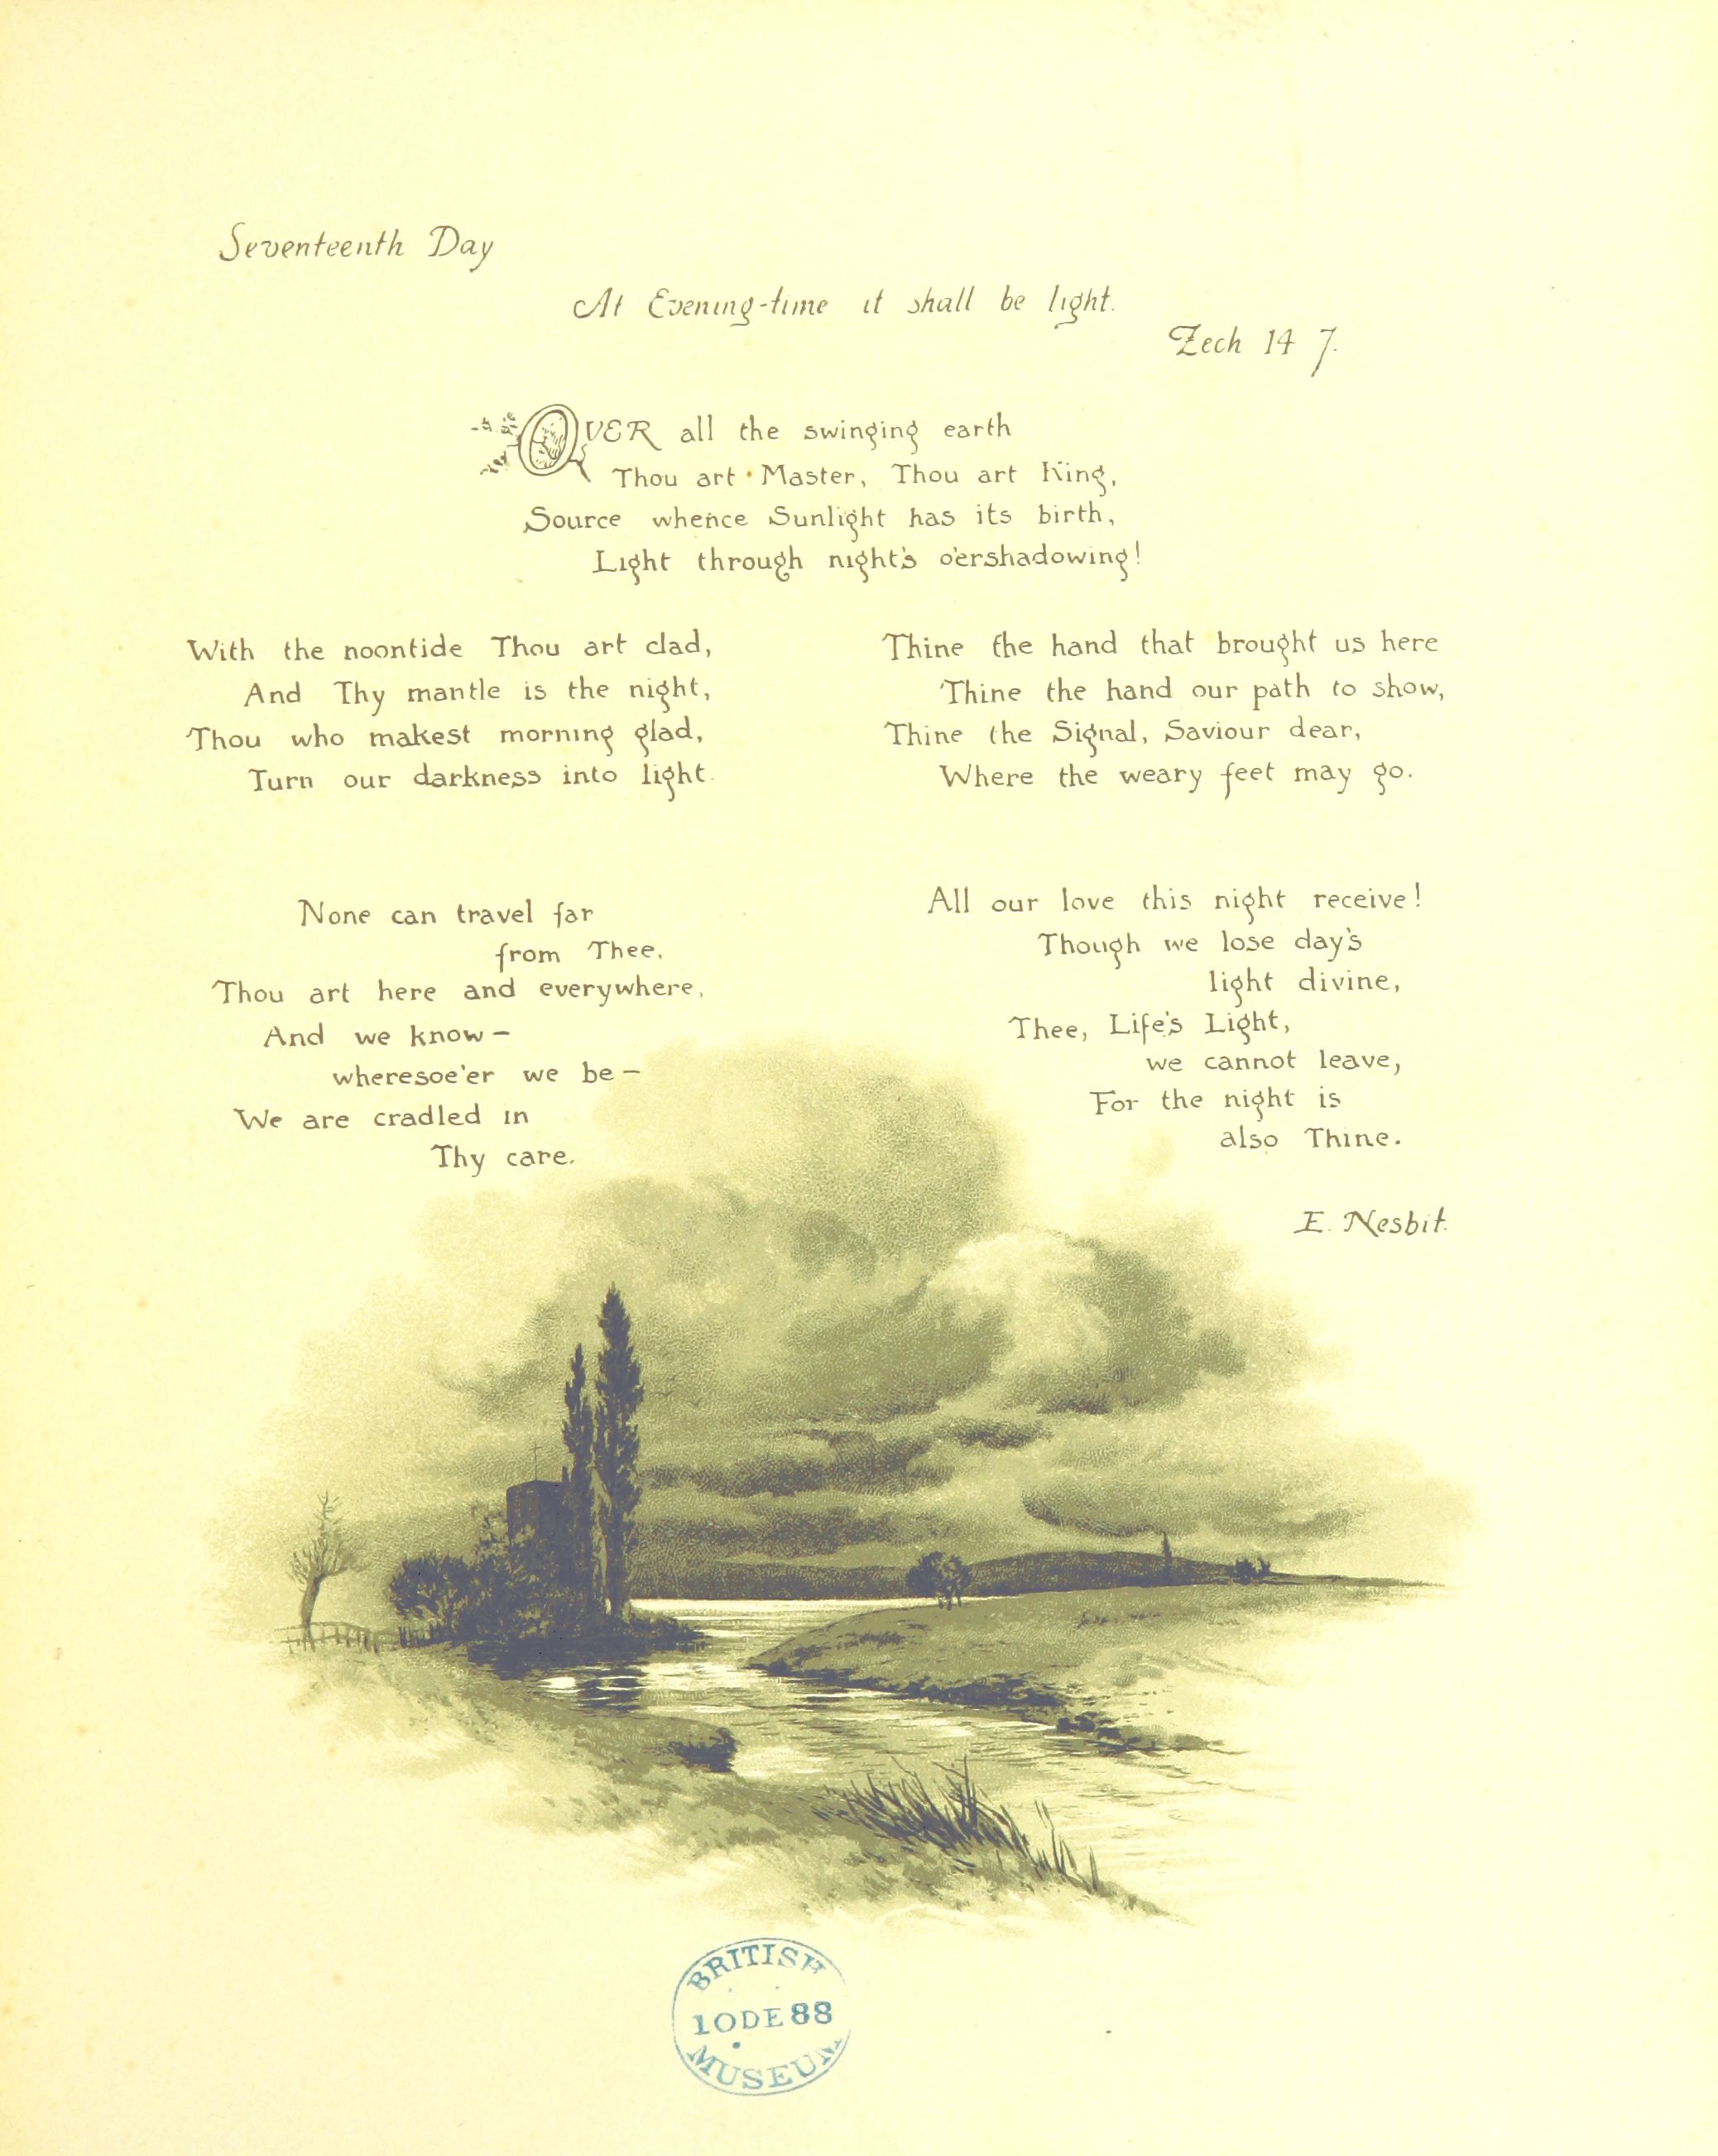 Seventeenth Day
At Evening-time it shall be light.
Zech 14 7.
OVER all the swinging earth
Thou art Master, Thou art King,
Source whence Sunlight has its birth,
Light through night's o'ershadowing!
With the noontide Thou art clad,
And Thy mantle is the night,
Thou who makest morning glad,
Turn our darkness into light.
Thine the hand that brought us here
Thine the hand our path to show,
Thine the Signal, Saviour dear,
Where the weary feet may go.
None can travel far
from Thee,
Thou art here and everywhere,
And we know—
wheresoe'er we be—
We are cradled in
Thy care.
All our love this night receive!
Though we lose day's
light divine,
Thee, Life's Light,
we cannot leave,
For the night is
also Thine.
E. Nesbit.
BRITISH
10DE88
MUSEUM